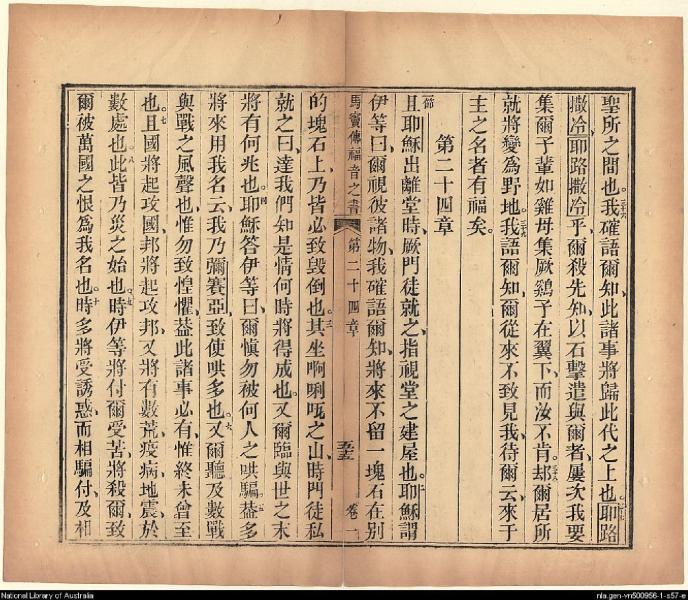 聖所之間也。三十六我確語爾知、此諸事將歸此代之上也。三十七耶路
撒冷、耶路撒冷乎、爾殺先知、以石擊遣與爾者、屢次我要
集爾子輩如雞母集厥鷄子在翼下、而汝不肯。三十八却爾居所
就將變爲野地。三十九我語爾知、爾從來不致見我、待爾云、來于
主之名者有福矣。
第二十四章
一節且耶穌出離堂時、厥門徒就之、指視堂之建屋也。二耶穌謂
伊等曰、爾視彼諸物、我確語爾知、將來不留一塊石在別
馬竇傳福音之書 第二十四章 五十五 卷一
的塊石上、乃皆必致毀倒也。三其坐啊唎咓之山、時門徒私
就之曰、達我們知是情何時將得成也。又爾臨與世之末
將有何兆也。四耶穌答伊等曰、爾慎勿被何人之哄騙。五蓋多
將來用我名云、我乃彌賽亞、致使哄多也。六又爾聽及數戰
與戰之風聲也、惟勿致惶懼、蓋此諸事必有、惟終未曾至
也。七且國將起攻國、邦將起攻邦、又將有數荒、疫病、地震於
數處也。八此皆乃災之始也。九時伊等將付爾受苦、將殺爾、致
爾被萬國之恨爲我名也。十時多將受誘惑、而相騙付、及相
National Library of Australia
nla.gen-vn500956-1-s57-e